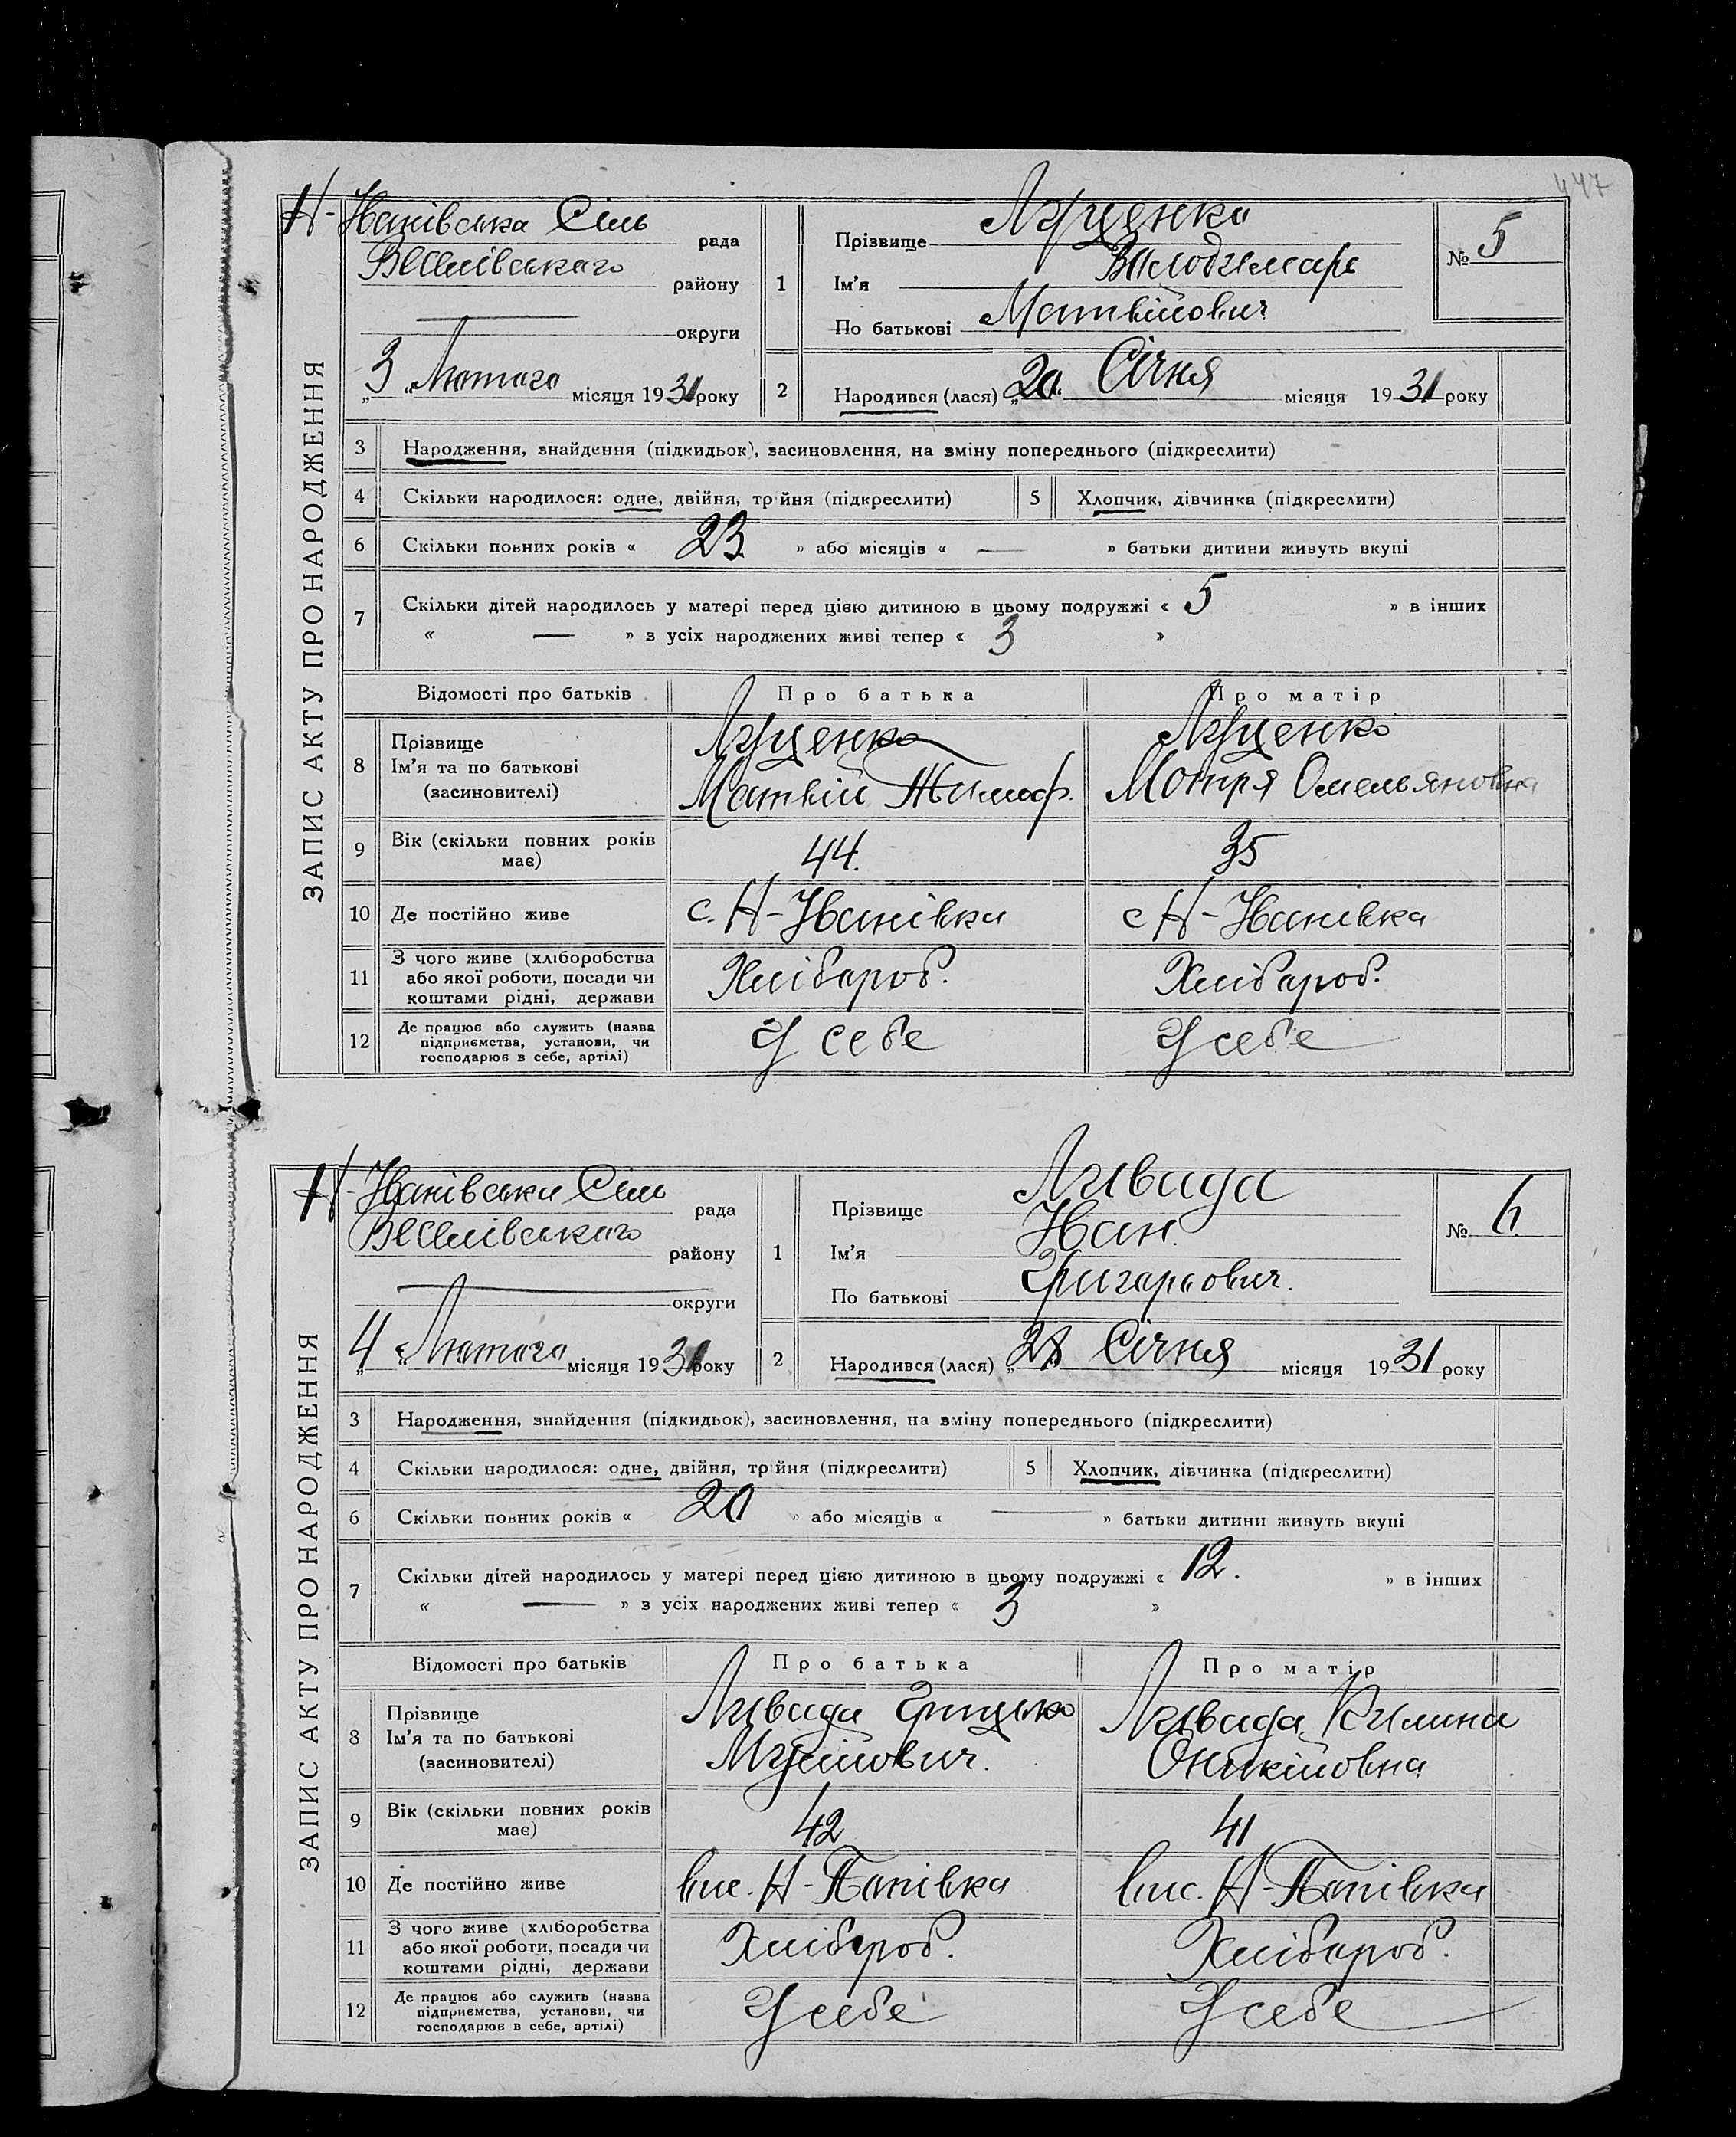 447
ЗАПИС АКТУ ПРО НАРОДЖЕННЯ
Н-Іванівська Сіль рада
Веселівського району
округи
„3“ Лютого місяця 1931 року
1 Прізвище Луценко
Ім'я Володимир
По батькові Матвійович
№ 5
2 Народився (лася) „20“ Січня місяця 1931 року
3 Народження, знайдення (підкидьок), засиновлення, на зміну попереднього (підкреслити)
4 Скільки народилося: одне, двійня, трійня (підкреслити) 5 Хлопчик, дівчинка (підкреслити)
6 Скільки повних років « 23 » або місяців « — » батьки дитини живуть вкупі
7 Скільки дітей народилось у матері перед цією дитиною в цьому подружжі « 5 » в інших
« — » з усіх народжених живі тепер « 3 »
Відомості про батьків Про батька Про матір
8 Прізвище Ім'я та по батькові (засиновителі)
Луценко Матвій Тимоф.
Луценко Мотря Омельяновна
9 Вік (скільки повних років має) 44. 35
10 Де постійно живе с. Н-Іванівка с Н-Іванівка
11 З чого живе (хліборобства або якої роботи, посади чи коштами рідні, держави Хлібороб. Хлібороб.
12 Де працює або служить (назва підприємства, установи, чи господарює в себе, артілі) У себе У себе
ЗАПИС АКТУ ПРО НАРОДЖЕННЯ
Н-Іванівська Сіль рада
Веселівського району
округи
„4“ Лютого місяця 1931 року
1 Прізвище Ливада
Ім'я Іван.
По батькові Григорович.
№ 6
2 Народився (лася) „28 Січня місяця 1931 року
3 Народження, знайдення (підкидьок), засиновлення, на зміну попереднього (підкреслити)
4 Скільки народилося: одне, двійня, трійня (підкреслити) 5 Хлопчик, дівчинка (підкреслити)
6 Скільки повних років « 20 » або місяців « — » батьки дитини живуть вкупі
7 Скільки дітей народилось у матері перед цією дитиною в цьому подружжі « 12. » в інших
« — » з усіх народжених живі тепер « 3 »
Відомості про батьків Про батька Про матір
8 Прізвище Ім'я та по батькові (засиновителі)
Ливада Грицько
Ливада Килина Оникійовна
9 Вік (скільки повних років має) 42 41
10 Де постійно живе вис. Н-Попівка вис. Н-Попівка
11 З чого живе (хліборобства або якої роботи, посади чи коштами рідні, держави Хлібороб. Хлібороб.
12 Де працює або служить (назва підприємства, установи, чи господарює в себе, артілі) У себе У себе